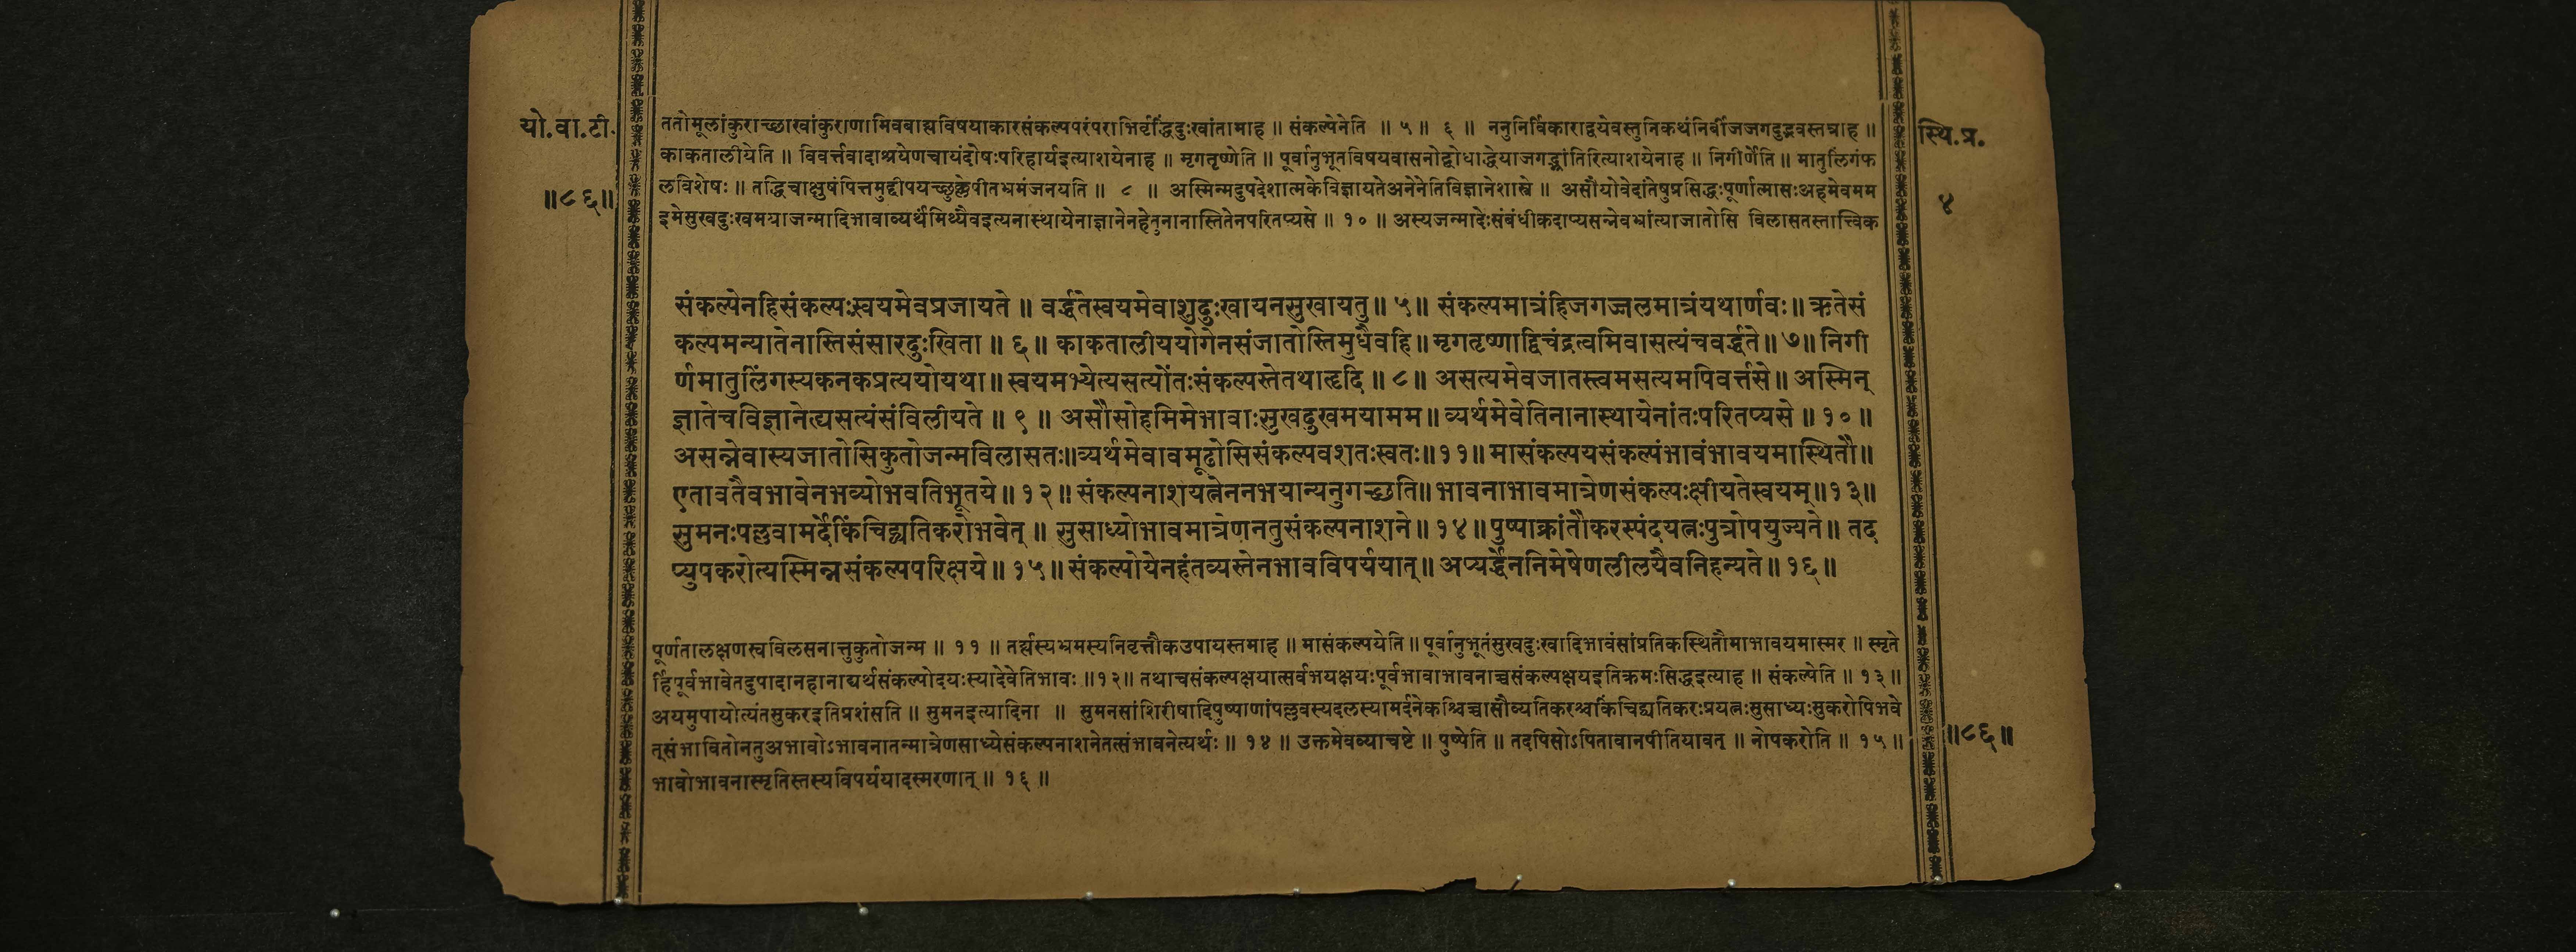 यो.वा.टी.
॥८६॥
स्थि.प्र.
४
ततोमूलांकुराच्छाखांकुराणामिवबाह्यविषयाकारसंकल्पपरंपराभिर्वृद्धिदुःखांतामाह ॥ संकल्पेनेति ॥ ५ ॥ ६ ॥ ननुनिर्विकाराद्वयेवस्तुनिकथंनिर्बीजजगदुद्भवस्तत्राह ॥
काकतालीयेति ॥ विवर्त्तवादाश्रयेणचायंदोषःपरिहार्यइत्याशयेनाह ॥ मृगतृष्णेति ॥ पूर्वानुभूतविषयवासनोद्बोधाद्धेयाजगद्भ्रांतिरित्याशयेनाह ॥ निगीर्णेति ॥ मातुलिंगंफ
लविशेषः ॥ तद्धिचाक्षुषंपित्तमुद्दीपयच्छुक्लेपीतभ्रमंजनयति ॥ ८ ॥ अस्मिन्मदुपदेशात्मकेविज्ञायतेअनेनेतिविज्ञानेशास्त्रे ॥ असौयोवेदांतेषुप्रसिद्धःपूर्णात्मासःअहमेवमम
इमेसुखदुःखमयाजन्मादिभावाव्यर्थंमिथ्यैवइत्यनास्थायेनाज्ञानेनहेतुनानास्तितेनपरितप्यसे ॥ १० ॥ अस्यजन्मादेःसंबंधीकदाप्यसन्नेवभ्रांत्याजातोसि विलासतस्तात्त्विक
संकल्पेनहिसंकल्पःस्वयमेवप्रजायते ॥ वर्द्धतेस्वयमेवाशुदुःखायनसुखायतु ॥ ५ ॥ संकल्पमात्रंहिजगज्जलमात्रंयथार्णवः ॥ ऋतेसं
कल्पमन्यातेनास्तिसंसारदुःखिता ॥ ६ ॥ काकतालीययोगेनसंजातोस्तिमुधैवहि ॥ मृगतृष्णाद्विचंद्रत्वमिवासत्यंचवर्द्धते ॥ ७ ॥ निगी
र्णमातुलिंगस्यकनकप्रत्ययोयथा ॥ स्वयमभ्येत्यसत्योंतःसंकल्पस्तेतथाहृदि ॥ ८ ॥ असत्यमेवजातस्त्वमसत्यमपिवर्त्तसे ॥ अस्मिन्
ज्ञातेचविज्ञानेत्द्यसत्यंसंविलीयते ॥ ९ ॥ असौसोहमिमेभावाःसुखदुखमयामम ॥ व्यर्थमेवेतिनानास्थायेनांतःपरितप्यसे ॥ १० ॥
असन्नेवास्यजातोसिकुतोजन्मविलासतः॥व्यर्थमेवावमूढोसिसंकल्पवशतःस्वतः॥११॥ मासंकल्पयसंकल्पंभावंभावयमास्थितौ॥
एतावतैवभावेनभव्योभवतिभूतये ॥ १२ ॥ संकल्पनाशयत्नेननभयान्यनुगच्छति॥ भावनाभावमात्रेणसंकल्पःक्षीयतेस्वयम्॥१३॥
सुमनःपल्लवामर्देकिंचिद्व्यतिकरोभवेत् ॥ सुसाध्योभावमात्रेणनतुसंकल्पनाशने॥ १४ ॥ पुष्पाक्रांतौकरस्पंदयत्नःपुत्रोपयुज्यते॥ तद
प्युपकरोत्यस्मिन्नसंकल्पपरिक्षये॥ १५॥ संकल्पोयेनहंतव्यस्तेनभावविपर्ययात्॥ अप्यर्द्धेननिमेषेणलीलयैवनिहन्यते॥ १६॥
पूर्णतालक्षणस्वविलसनात्तुकुतोजन्म ॥ ११ ॥ तर्ह्यस्यभ्रमस्यनिवृत्तौकउपायस्तमाह ॥ मासंकल्पयेति ॥ पूर्वानुभूतंसुखदुःखादिभावंसांप्रतिकस्थितौमाभावयमास्मर ॥ स्मृते
र्हिपूर्वभावेतदुपादानहानाद्यर्थसंकल्पोदयःस्यादेवेतिभावः ॥१२॥ तथाचसंकल्पक्षयात्सर्वभयक्षयःपूर्वभावाभावनाच्चसंकल्पक्षयइतिक्रमःसिद्धइत्याह ॥ संकल्पेति ॥ १३ ॥
अयमुपायोत्यंतसुकरइतिप्रशंसति ॥ सुमनइत्यादिना ॥ सुमनसांशिरीषादिपुष्पाणांपल्लवस्यदलस्यामर्दनेकश्चिच्चासौव्यतिकरश्चकिंचिद्व्यतिकरःप्रयत्नःसुसाध्यःसुकरोपिभवे
त्संभावितोनतुअभावोऽभावनातन्मात्रेणसाध्येसंकल्पनाशनेतत्संभावनेत्यर्थः ॥ १४ ॥ उक्तमेवव्याचष्टे ॥ पुष्पेति ॥ तदपिसोऽपितावानपीतियावत् ॥ नोपकरोति ॥ १५ ॥
भावोभावनास्मृतिस्तस्यविपर्ययादस्मरणात् ॥ १६ ॥
॥८६॥